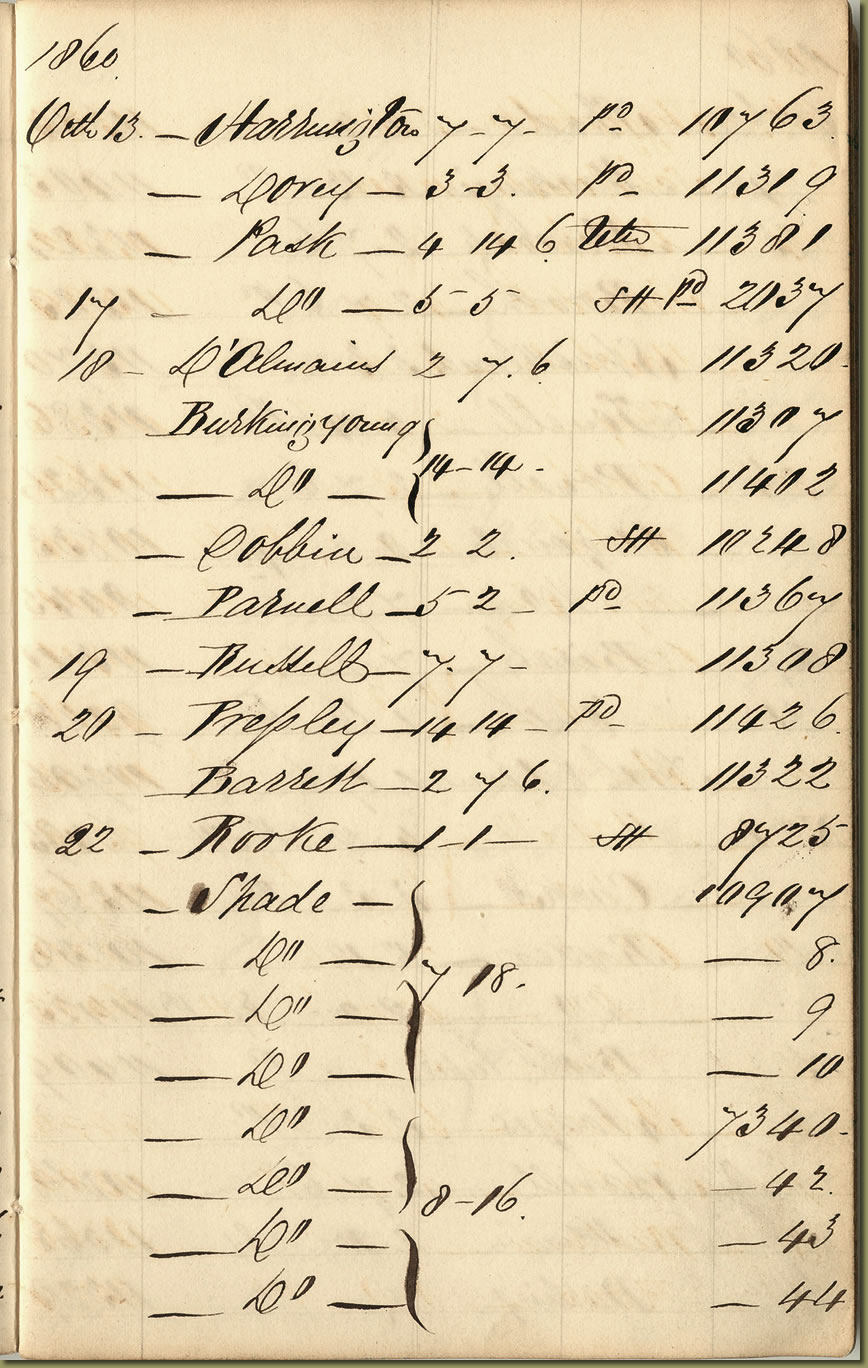 1860.
Octr 13. — Harrington 7 - 7 - pd 10763
— Dovey — 3 - 3. pd 11319
— Pask — 4 14 6 11381
17 - Do — 5 5 SH pd 2037
18 - D'Almaine 2 7. 6 11320.
Burkinyoung 11307
— Do — 14 - 14 - 11402
— Dobbin — 2 2. SH 10248
— Parnell — 5 2 - pd 11367
19 — Russell — 7. 7 - 11308
20 - Pressley — 14 14 - pd - 11426.
— Barrett — 2 7 6. 11322
22 - Rooke — 1 - 1 — SH 8725
- Shade — 10907
— Do — — 8.
7 18.
— Do — — 9
— Do — — 10
— Do — 7340.
— Do — — 42.
8 - 16.
— Do — — 43
— Do — — 44